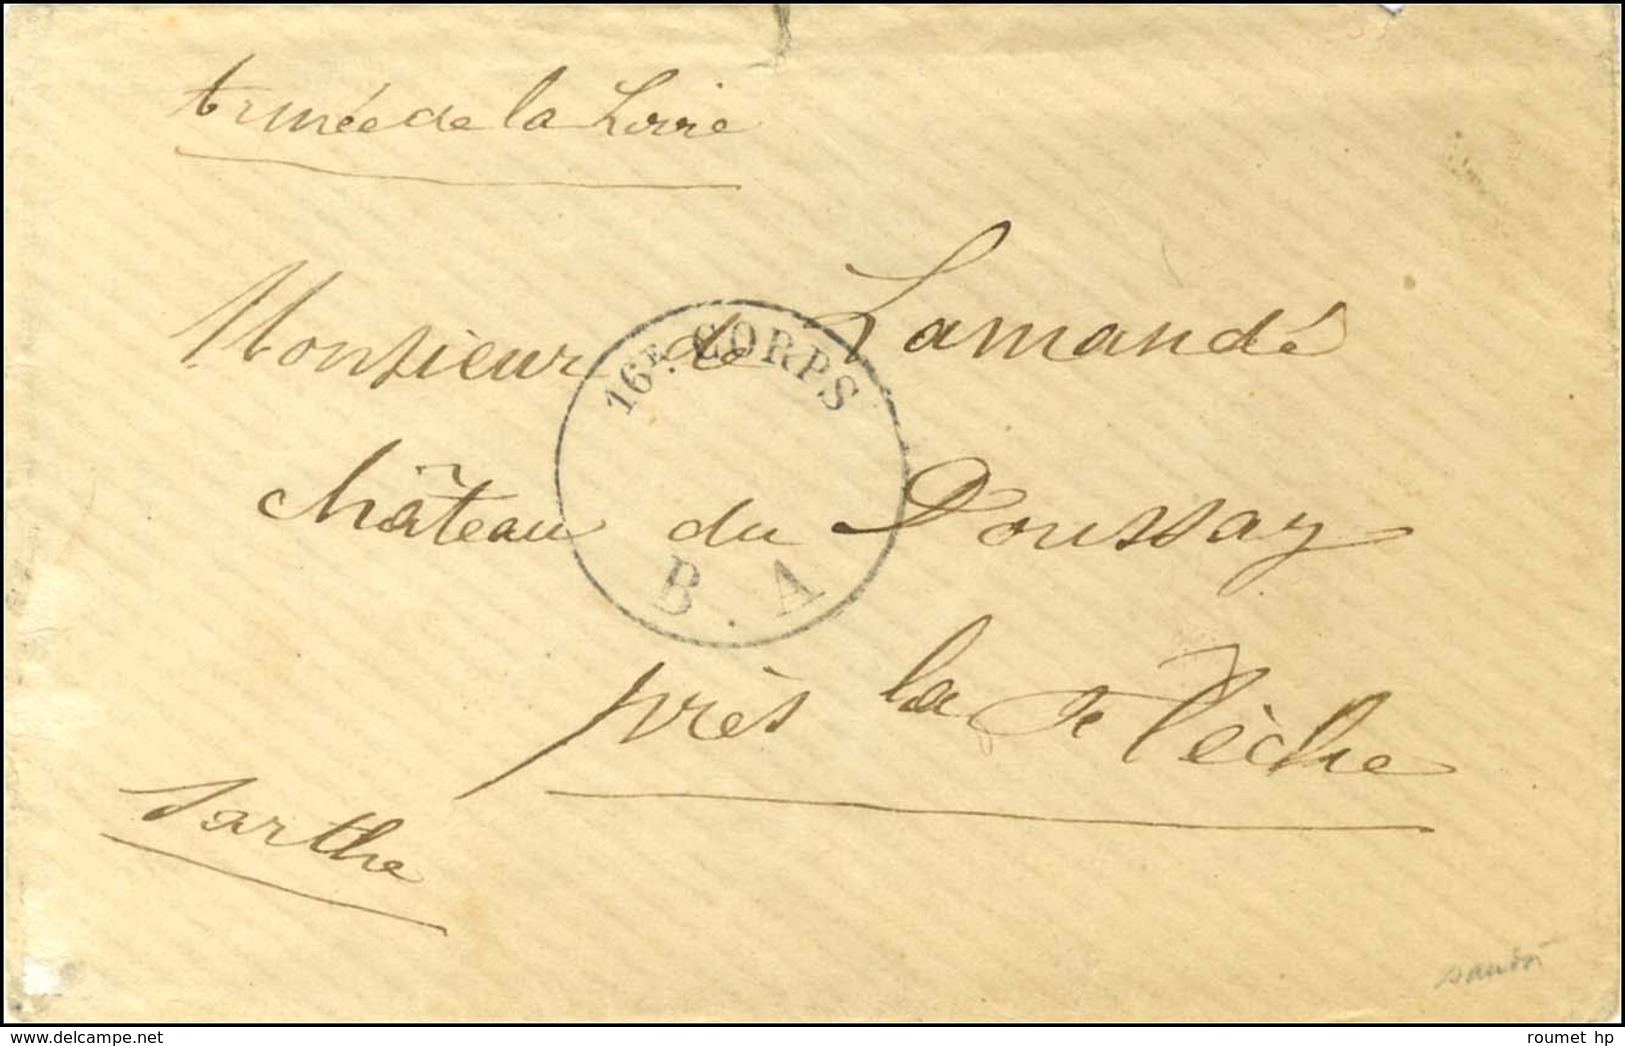 Armée de la Loire
Monsieur de Lamandé
16E CORPS
château du Doussay
B. A
près la Flèche
Sarthe
delcampe.net
roumet hp